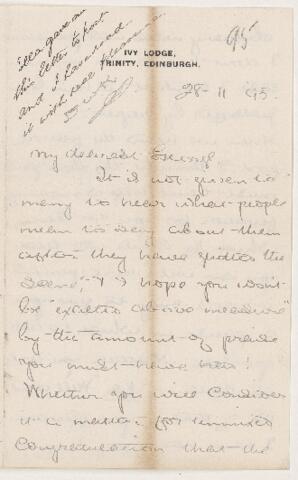 95
Ella gave me
this letter to post
and I have read
it with real pleasure
IVY LODGE,
TRINITY, EDINBURGH.
28-11-95.
My dearest
It is not given to
many to hear what people
mean to say about them
after they have quitted the
scene, & I hope you won't
be "exalted above measure"
by the amount of praise
you must have had!
Whether you will consider
it a matter for
congratulation that the